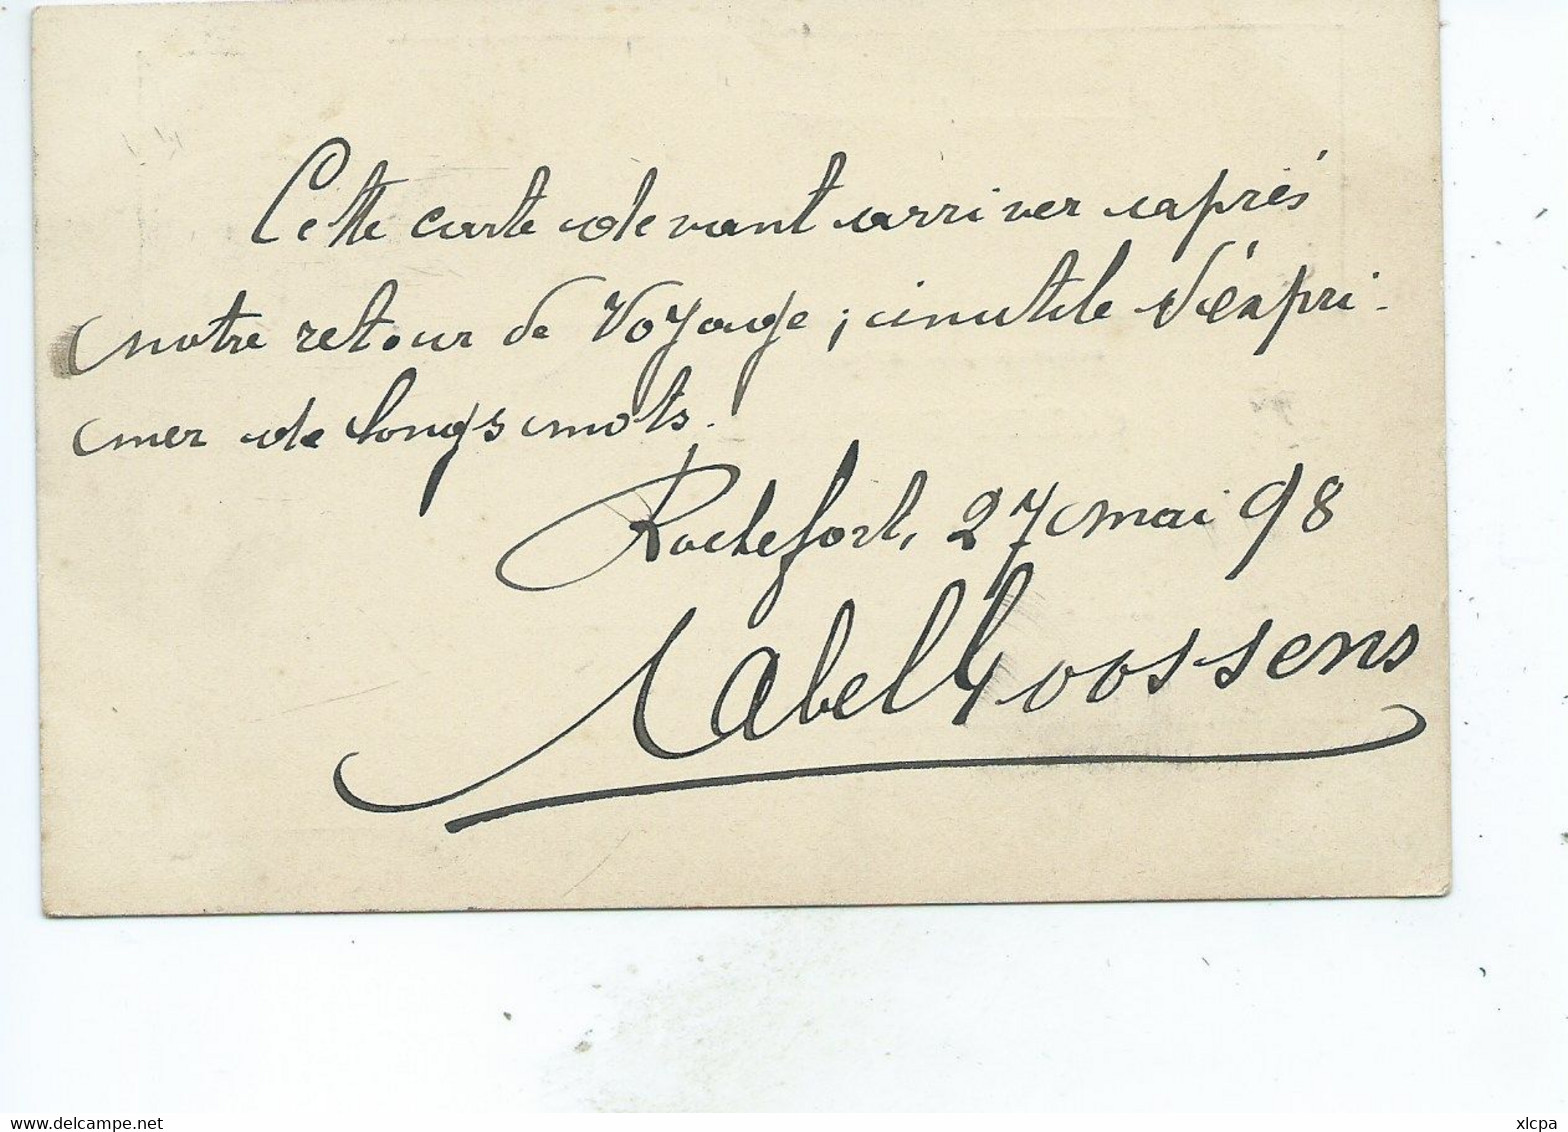 Cette carte devant arriver après
notre retour de Voyage; inutile d'expri-
mer de longs mots.
Rochefort, 27 mai 98
Abel Goossens
www.delcampe.net
xlcpa